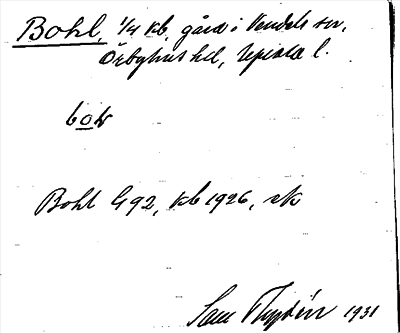 Bohl, 1/4 kb, gård i Vendels sn,
Örbyhus hd, Uppsala l.
bow
Bohl G92, kb 1926, rk
1931